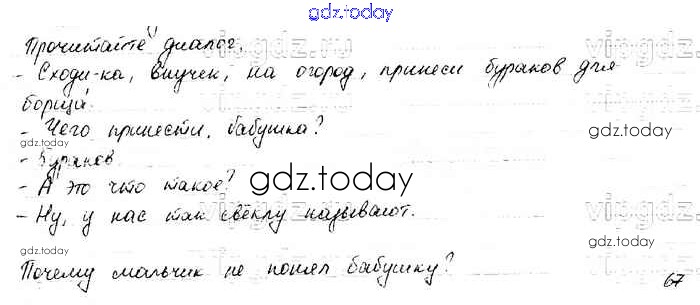 gdz.today
Прочитайте диалог.
- Сходи-ка, внучек, на огород, принеси бураков для
борща.
- Чего принести, бабушка?
gdz.today
gdz.today
- Бураков
- А это что такое?
gdz.today
- Ну, у нас так свёклу называют.
gdz.today
gdz.today
Почему мальчик не понял бабушку?
67